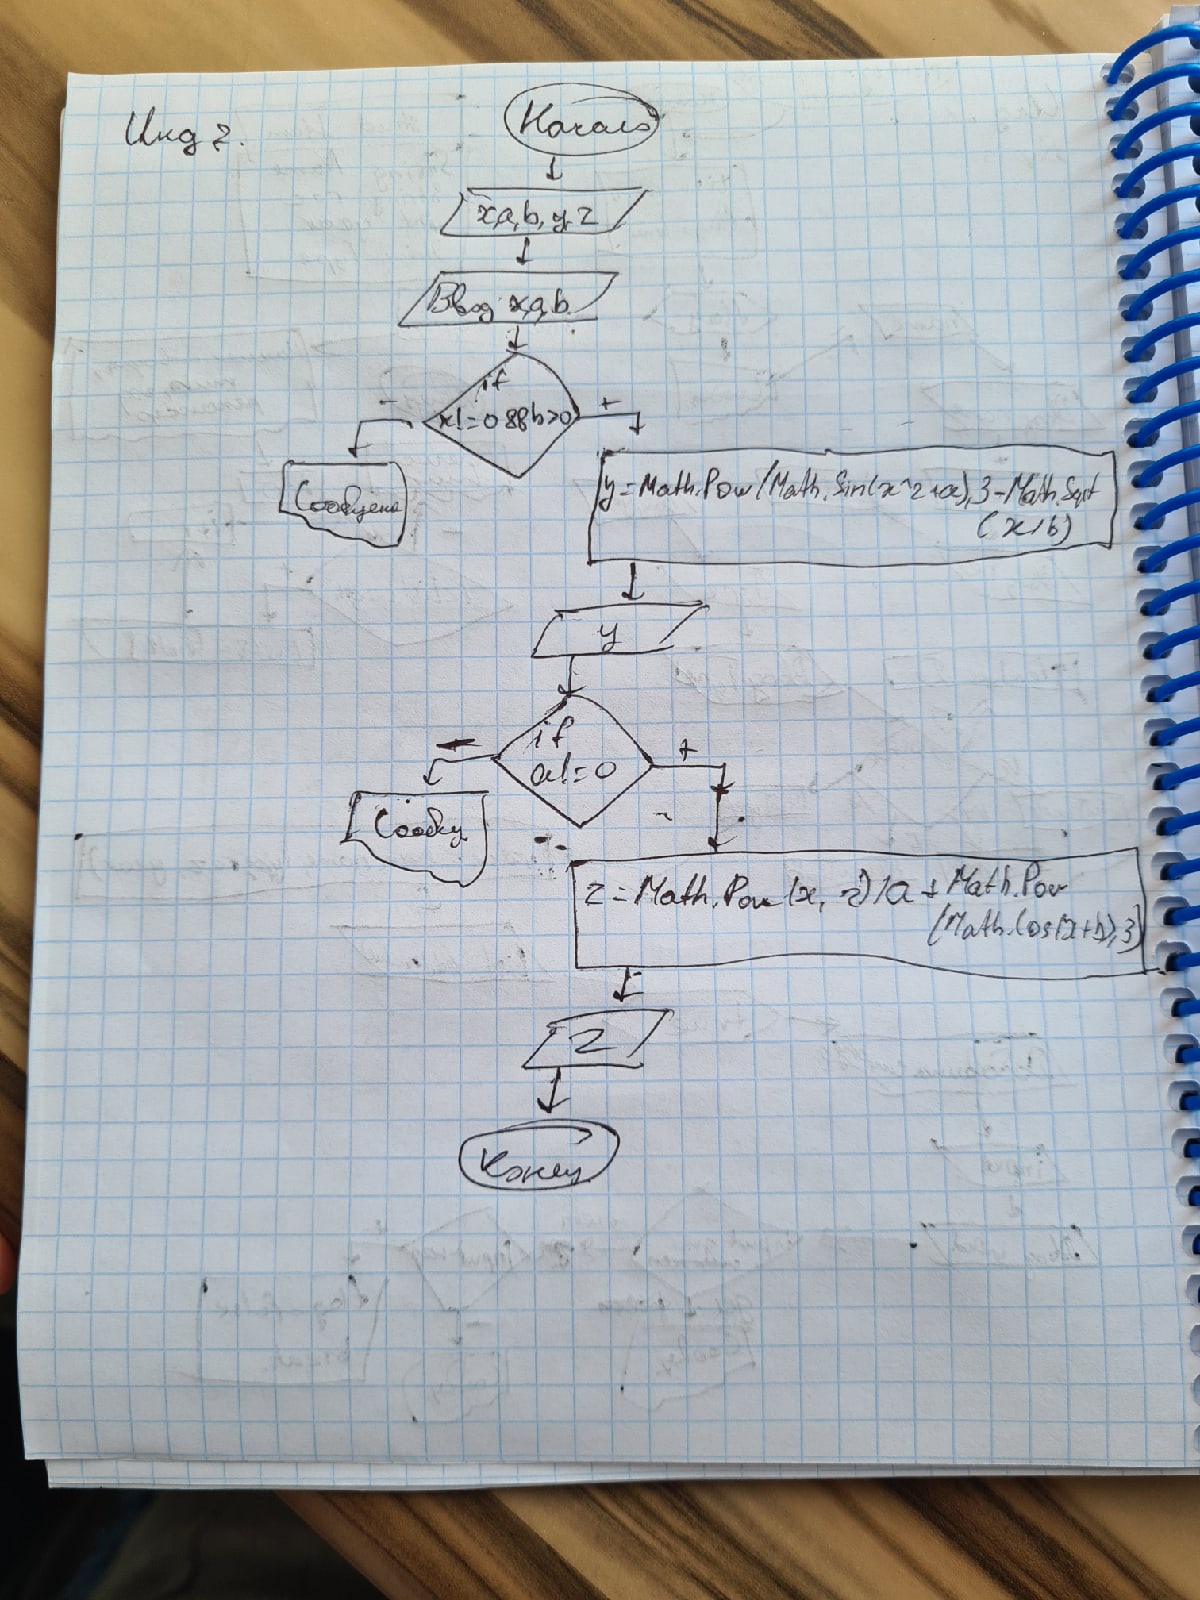 Инд 2.
Начало
x,a,b,y,z
Ввод x,a,b
if
x!=0 && b>0
-
+
Сообщение
y=Math.Pow(Math.Sin(x^2+a),3-Math.Sqrt
(x/b)
y
if
a!=0
-
+
Сообщ
z=Math.Pow(x, 2)/a + Math.Pow
(Math.Cos(x+b),3)
z
Конец